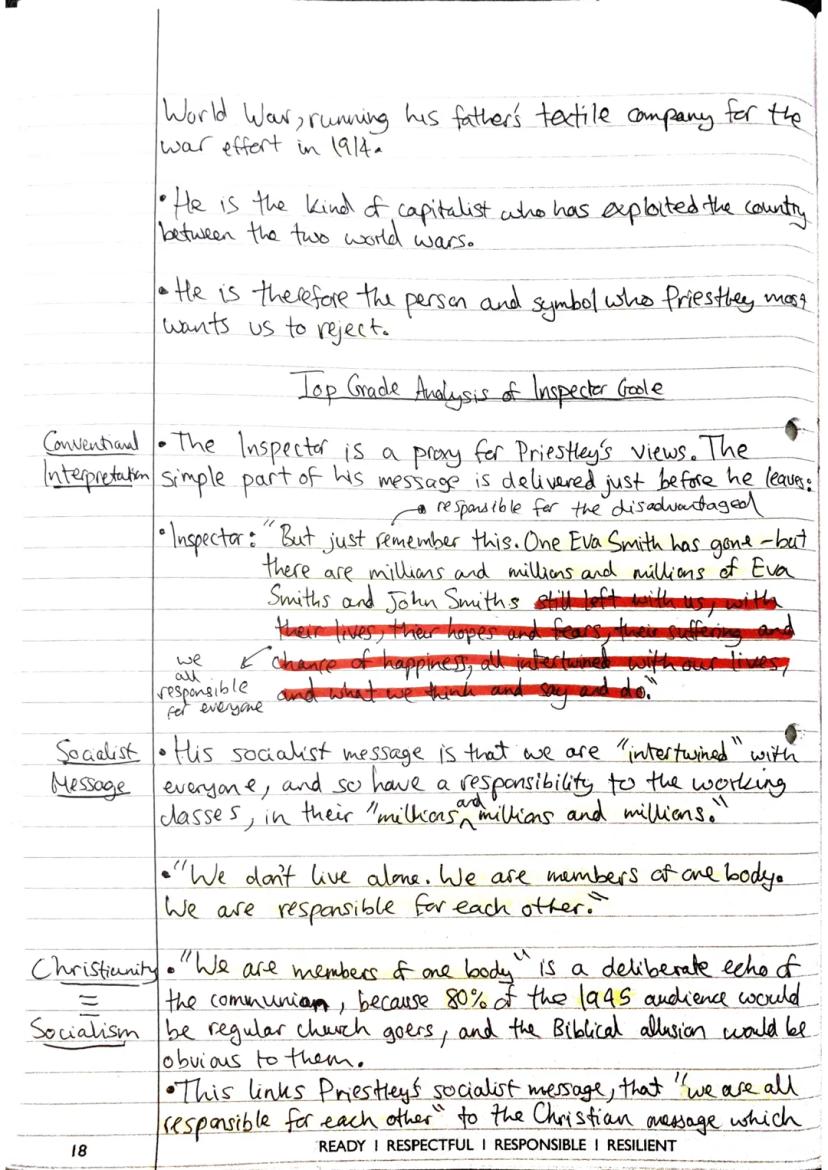 World War, running his father's textile company for the
war effort in 1914.
• He is the kind of capitalist who has exploited the country
between the two world wars.
• He is therefore the person and symbol who Priestley most
wants us to reject.
Top Grade Analysis of Inspector Goole
Conventional
Interpretation
• The Inspector is a proxy for Priestley's views. The
simple part of his message is delivered just before he leaves:
responsible for the disadvantaged
• Inspector: "But just remember this. One Eva Smith has gone - but
there are millions and millions and millions of Eva
Smiths and John Smiths still left with us, with
their lives, their hopes and fears, their suffering and
chance of happiness, all intertwined with our lives,
and what we think and say and do."
we
all
responsible
for everyone
Socialist
Message
• His socialist message is that we are "intertwined" with
everyone, and so have a responsibility to the working
classes, in their "millions and millions and millions."
• "We don't live alone. We are members of one body.
We are responsible for each other."
Christianity
=
Socialism
• "We are members of one body" is a deliberate echo of
the communion, because 80% of the 1945 audience would
be regular church goers, and the Biblical allusion would be
obvious to them.
• This links Priestley's socialist message, that "we are all
responsible for each other" to the Christian message which
18
READY I RESPECTFUL I RESPONSIBLE I RESILIENT